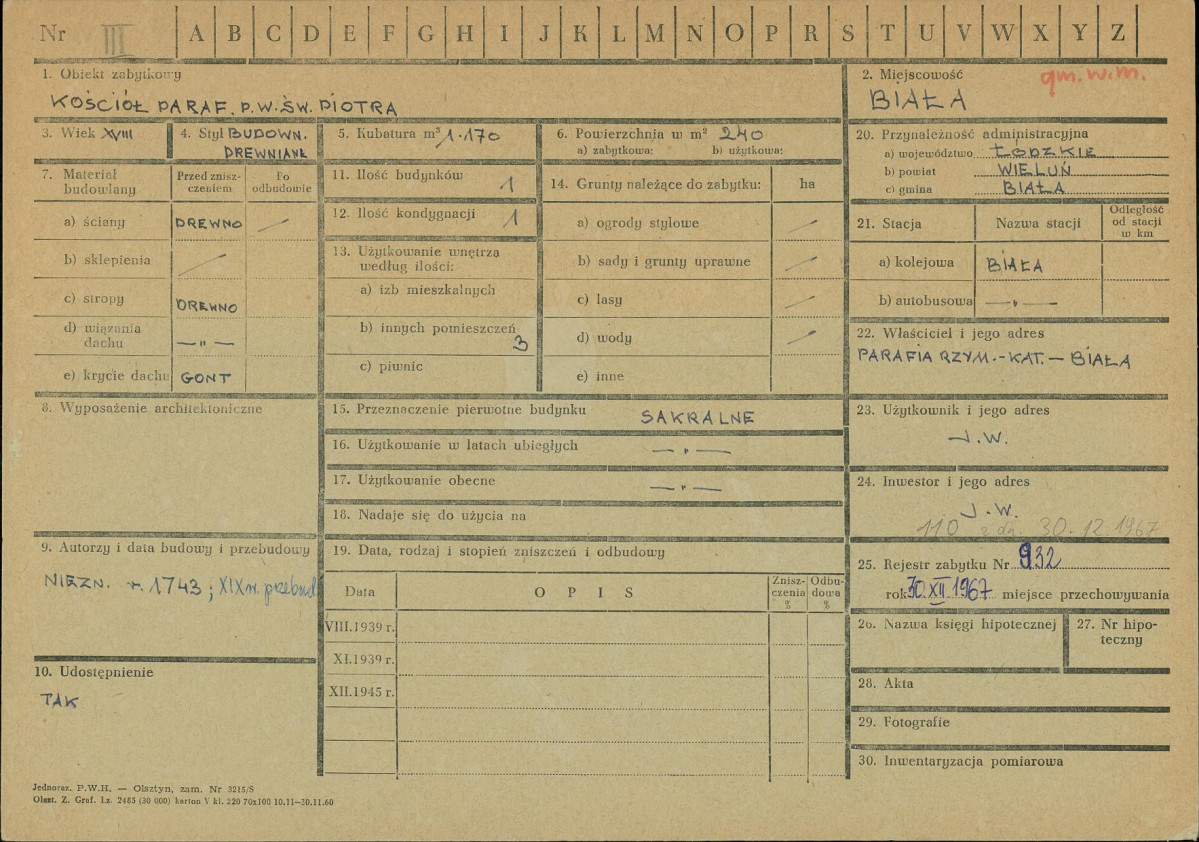 Nr III A B C D E F G H I J K L M N O P R S T U V W X Y Z
1. Obiekt zabytkowy
KOŚCIÓŁ PARAF. P.W. ŚW. PIOTRA
2. Miejscowość gm. w.m.
BIAŁA
3. Wiek XVIII
4. Styl BUDOWN.
DREWNIANE
5. Kubatura m³ 1.170
6. Powierzchnia w m² 240
a) zabytkowa: b) użytkowa:
7. Materiał budowlany
Przed zniszczeniem
Po odbudowie
a) ściany DREWNO —
b) sklepienia —
c) stropy DREWNO
d) wiązania dachu — " —
e) krycie dachu GONT
8. Wyposażenie architektoniczne
9. Autorzy i data budowy i przebudowy
NIEZN. r. 1743; XIX w. przebud
10. Udostępnienie
TAK
11. Ilość budynków 1
12. Ilość kondygnacji 1
13. Użytkowanie wnętrza
według ilości:
a) izb mieszkalnych
b) innych pomieszczeń
3
c) piwnic
14. Grunty należące do zabytku: ha
a) ogrody stylowe —
b) sady i grunty uprawne —
c) lasy —
d) wody —
e) inne
15. Przeznaczenie pierwotne budynku SAKRALNE
16. Użytkowanie w latach ubiegłych — " —
17. Użytkowanie obecne — " —
18. Nadaje się do użycia na
19. Data, rodzaj i stopień zniszczeń i odbudowy
Data OPIS Zniszczenia % Odbudowa %
VIII.1939 r.
XI.1939 r.
XII.1945 r.
20. Przynależność administracyjna
a) województwo ŁÓDZKIE
b) powiat WIELUŃ
c) gmina BIAŁA
21. Stacja Nazwa stacji Odległość od stacji w km
a) kolejowa BIAŁA
b) autobusowa — " —
22. Właściciel i jego adres
PARAFIA RZYM.-KAT. — BIAŁA
23. Użytkownik i jego adres
J.W.
24. Inwestor i jego adres
J.W.
110 z dn. 30.12.1967
25. Rejestr zabytku Nr 932
rok 30.XII 1967 miejsce przechowywania
26. Nazwa księgi hipotecznej
27. Nr hipoteczny
28. Akta
29. Fotografie
30. Inwentaryzacja pomiarowa
Jednoraz. P.W.H. — Olsztyn, zam. Nr 3215/S
Olszt. Z. Graf. Lz. 2485 (30 000) karton V kl. 220 70x100 10.11—30.11.60